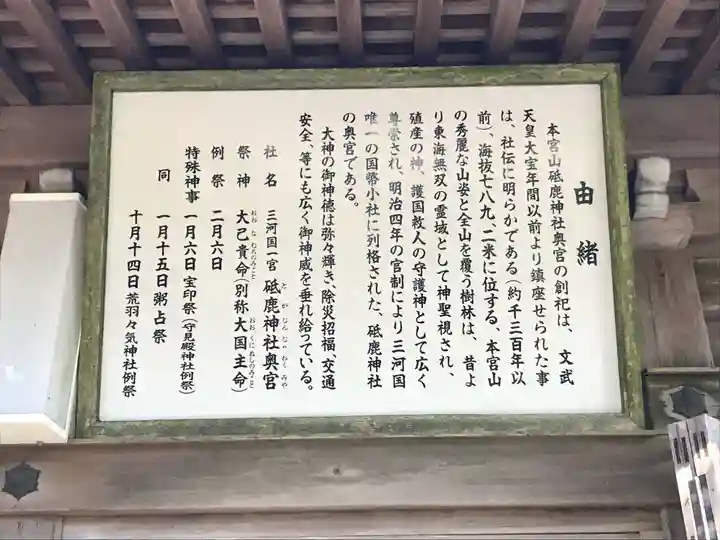 由緒
本宮山砥鹿神社奥宮の創祀は、文武
天皇大宝年間以前より鎮座せられた事
は、社伝に明らかである(約千三百年以
前)、海抜七八九、二米に位する、本宮山
の秀麗な山姿と全山を覆う樹林は、昔よ
り東海無双の霊域として神聖視され、
殖産の神、護国救人の守護神として広く
尊崇され、明治四年の官制により三河国
唯一の国幣小社に列格された、砥鹿神社
の奥宮である。
大神の御神徳は弥々輝き、除災招福、交通
安全、等にも広く御神威を垂れ給っている。
社名 三河国一宮 砥鹿神社奥宮
とがじんじゃおくみや
祭神 大己貴命(別称大国主命)
おおなむちのみこと おおくにぬしのみこと
例祭 二月六日
特殊神事 一月六日宝印祭(守見殿神社例祭)
同 一月十五日粥占祭
十月十四日荒羽々気神社例祭